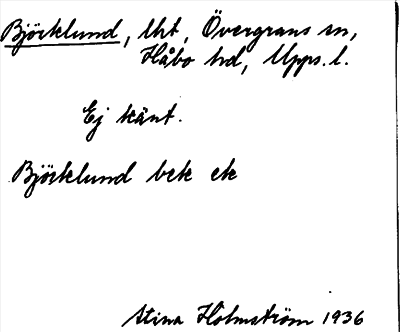 Björklund, lht, Övergrans sn,
Håbo hd, Upps. l.
Ej känt.
Björklund bek ek
Stina Holmström 1936